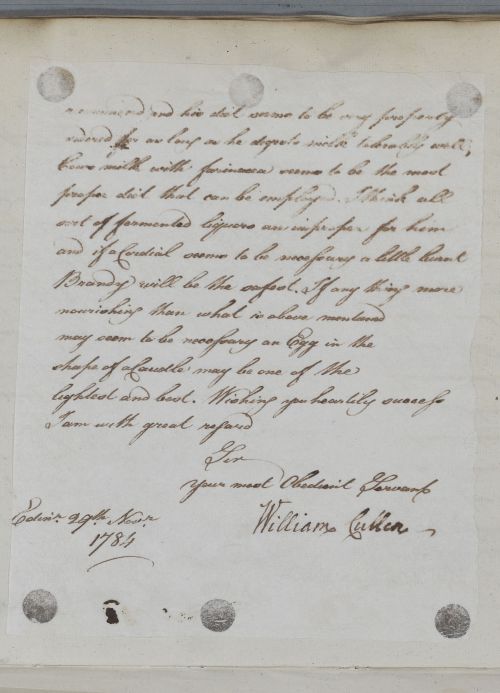 and his diet seems to be very properly
ordered for as long as he digests milk tolerably well,
Cows milk with farinacea seems to be the most
proper diet that can be employed. I think all
sort of fermented liquors are improper for him
and if a Cordial seems to be necessary a little burnt
Brandy will be the safest. If any thing more
nourishing than what is above mentioned
may seem to be necessary an Egg in the
shape of a Caudle may be one of the
lightest and best. Wishing you heartily success
I am with great regard
Sir
your most Obedient Servant
William Cullen
Edinr. 29th. Novr.
1784